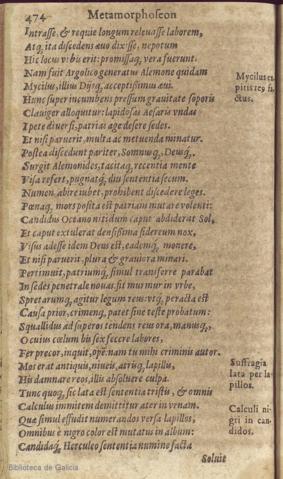 474 Metamorphoseon
Intrasse, & requie longum releuasse laborem,
Atq, ita discedens auo dixisse, nepotum
Hic locus vrbis erit: promissaq, vera fuerunt.
Nam fuit Argolico generatus Alemone quidam
Mycilus, illius Dijsq, acceptissimus æui.
Hunc super incumbens pressum grauitate soporis
Clauiger alloquitur: lapidosas Aesaris vndas
I pete diuersi, patrias age desere sedes.
Et nisi paruerit, multa ac metuenda minatur.
Postea discedunt pariter, Somnusq, Deusq,.
Surgit Alemonides, tacitaq, recentia mente
Visa refert, pugnatq, diu sententia secum.
Numen abire iubet, prohibent discedere leges.
Pœnaq, mors posita est patriam mutare volenti:
Candidus Oceano nitidum caput abdiderat Sol,
Et caput extulerat densissima sidereum nox,
Visus adesse idem Deus est, eademq, monere,
Et nisi paruerit, plura & grauiora minari.
Pertimuit, patriumq, simul transferre parabat
In sedes penetrale nouas. fit murmur in vrbe,
Spretarumq, agitur legum reus. vtq, peracta est
Causa prior, crimenq, patet sine teste probatum:
Squallidus ad superos tendens reus ora, manusq,,
O cuius cœlum bis sex fecere labores,
Fer precor, inquit, opē. nam tu mihi criminis autor.
Mos erat antiquis, niueis, atrisq, lapillis,
His damnare reos, illis absoluere culpa.
Tunc quoq, sic lata est sententia tristis, & omnis
Calculus immitem demittitur ater in vrnam.
Quæ simul effudit numerandos versa lapillos,
Omnibus è nigro color est mutatus in album:
Candidaq, Herculeo sententia numine facta
Soluit
Mycilus
Suffragia
lata per la-
pillos.
Calculi ni-
gri in can-
didos.
Biblioteca de Galicia